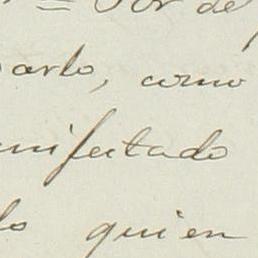 Por de
arlo, como
nifestado
lo quien